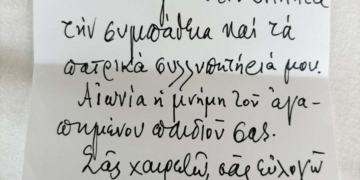 τὴν συμπάθεια καὶ τὰ
πατρικὰ συλλυπητήριά μου.
Αἰωνία ἡ μνήμη τοῦ ἀγα-
πημένου παιδιοῦ σας.
Σᾶς χαιρετῶ, σᾶς εὐλογῶ